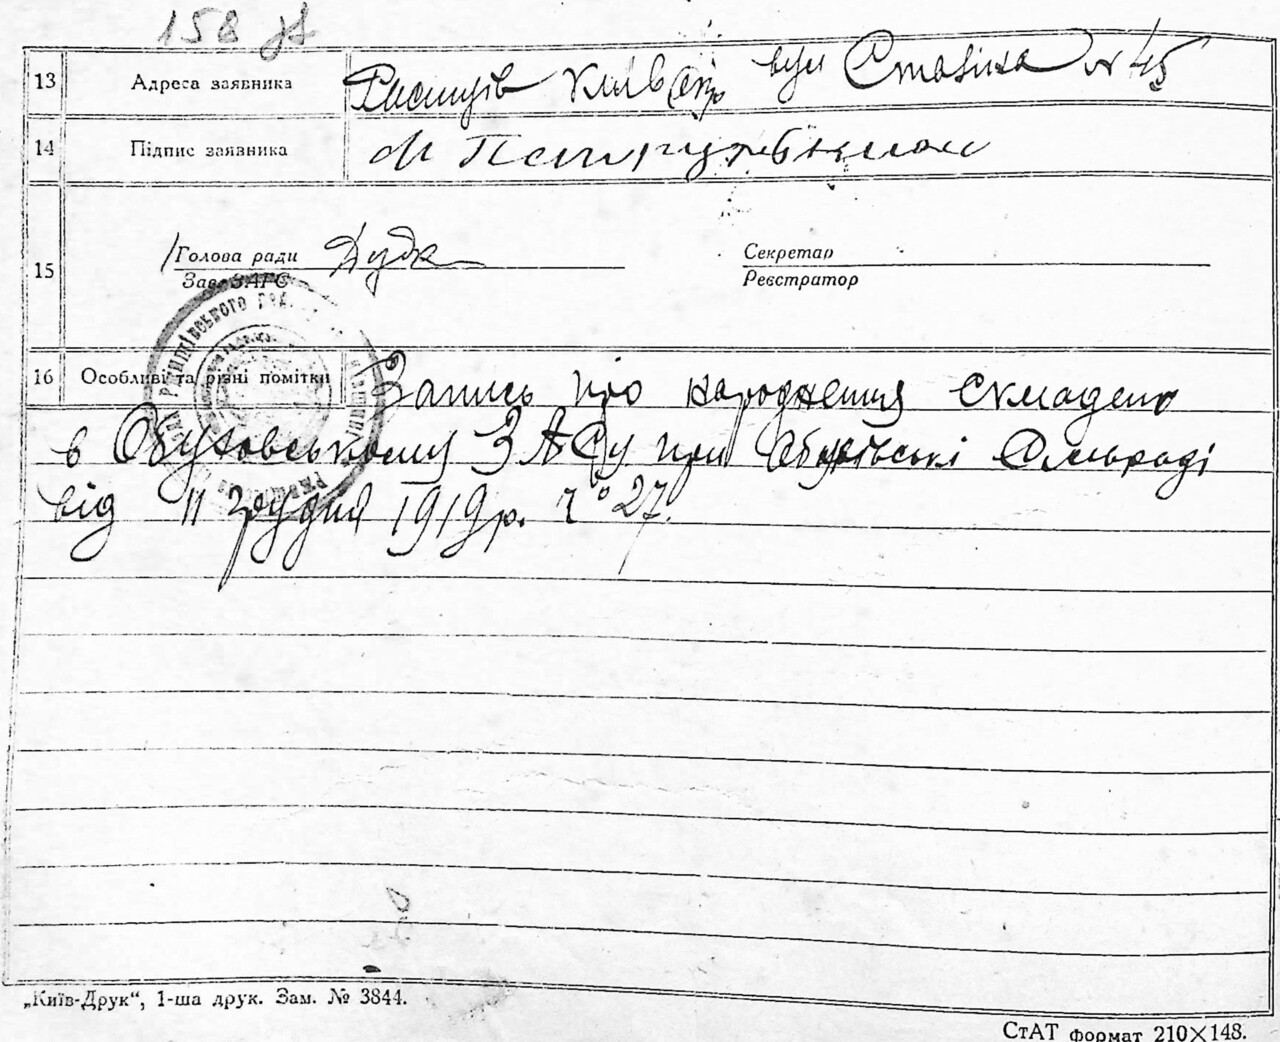 158
13 Адреса заявника київ вул Сталіна № 45
14 Підпис заявника М
15 Голова ради Дудк Секретар
Зав. ЗАГС Реєстратор
16 Особливі та різні помітки Запись про народження складено
в Обуховському ЗАГСу при Обухівські сільраді
від 11 грудня 1919 р. № 27.
„Київ-Друк“, 1-ша друк. Зам. № 3844.
СтАТ формат 210×148.